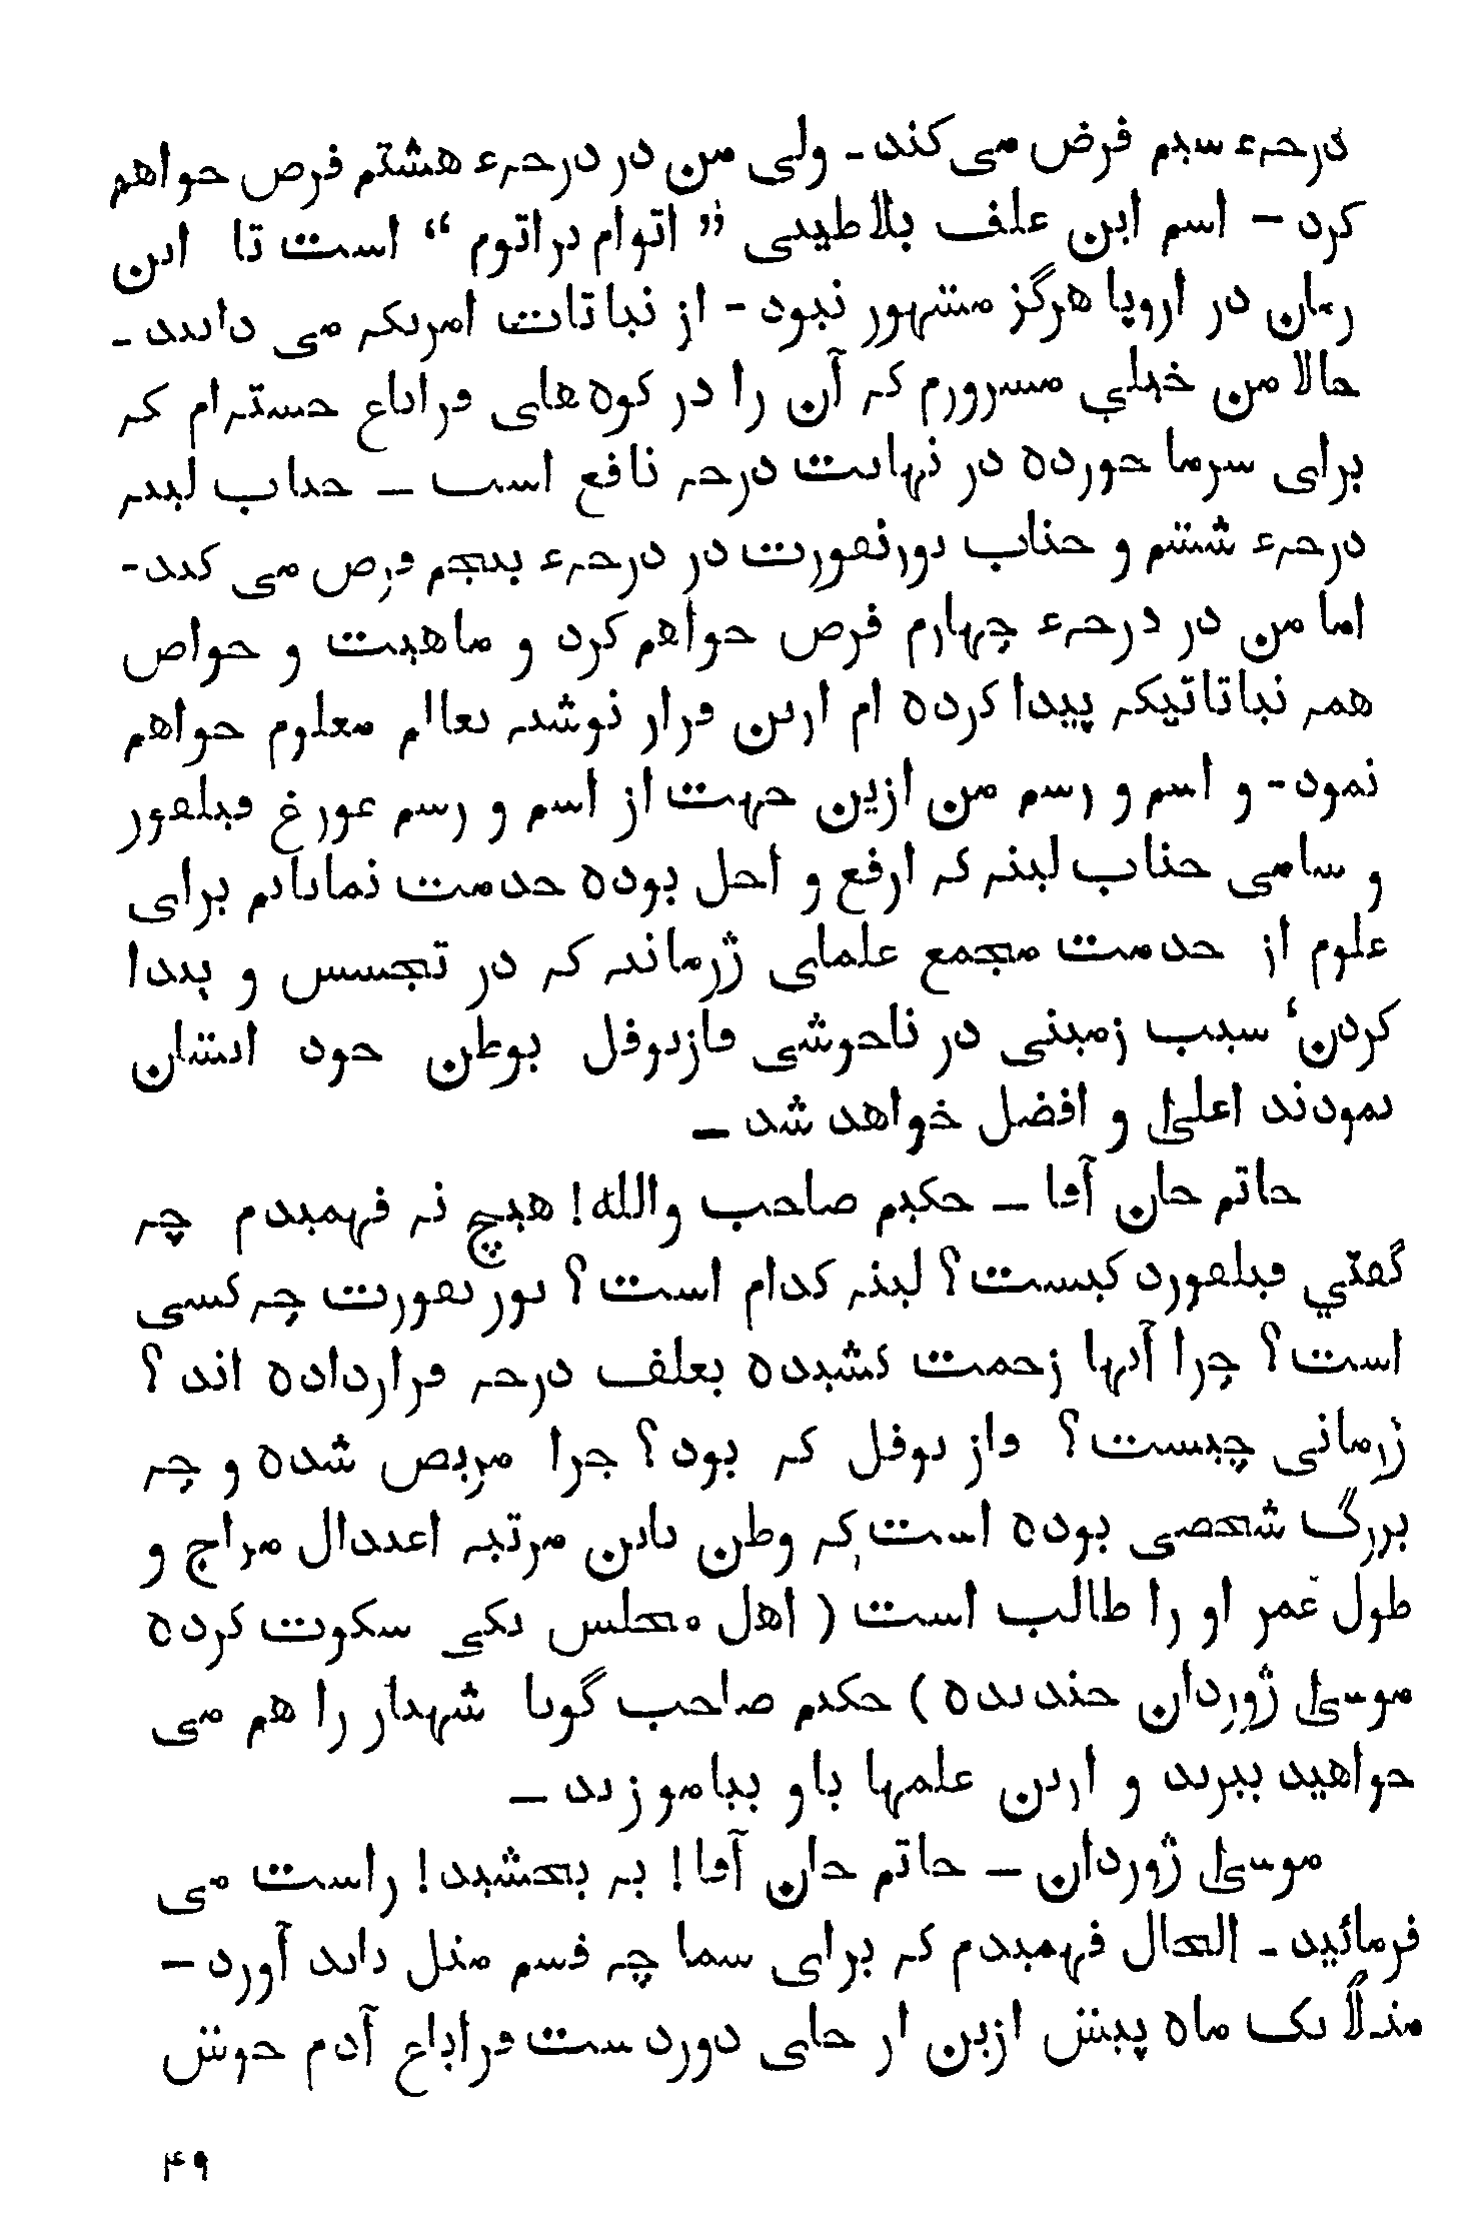 درجهء سیم فرض می کند - ولی من در درجهء هشتم فرض خواهم
کرد - اسم این علف بلاطینی ” اتوام دراتوم “ است تا این
زمان در اروپا هرگز مشهور نبود - از نباتات امریکه می دانند -
حالا من خیلي مسرورم که آن را در کوه های قراباغ جسته ام که
برای سرما خورده در نهایت درجه نافع است - جناب لینه
درجهء ششم و جناب دورنفورت در درجهء پنجم فرض می کند -
اما من در درجهء چهارم فرض خواهم کرد و ماهیت و خواص
همه نباتاتیکه پیدا کرده ام ازین قرار نوشته بعالم معلوم خواهم
نمود - و اسم و رسم من ازین جهت از اسم و رسم عورغ فیلفور
و سامی جناب لینه که ارفع و اجل بوده خدمت نمایانم برای
علوم از خدمت مجمع علمای ژرمانیه که در تجسس و پیدا
کردن‘ سیب زمینی در ناخوشی قازدوفل بوطن خود ایشان
نمودند اعلیٰ و افضل خواهد شد -
حاتم خان آقا - حکیم صاحب والله! هیچ نه فهمیدم چه
گفتي فیلفورد کیست؟ لینه کدام است؟ تورنفورت چه کسی
است؟ چرا آنها زحمت کشیده بعلف درجه قرارداده اند؟
ژرمانی چیست؟ قازدوفل که بود؟ چرا مریض شده و چه
بزرگ شخصی بوده است که وطن باین مرتبه اعتدال مزاج و
طول عمر او را طالب است ( اهل مجلس یکی سکوت کرده
موسیٰ ژوردان خندیده ) حکیم صاحب گویا شهباز را هم می
خواهید ببرید و ازین علمها باو بیاموزید -
موسیٰ ژوردان - حاتم خان آقا! به بخشید! راست می
فرمائید - الحال فهمیدم که برای شما چه قسم مثل باید آورد -
مثلاً یک ماه پیش ازین از جای دوردست قراباغ آدم خوش
۴۹